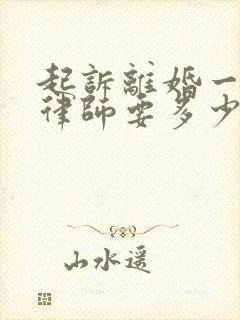 起訴離婚一
律師要多少
山水遥